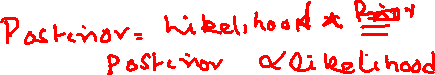 Posterior = Likelihood * Prior
Posterior ∝ Likelihood